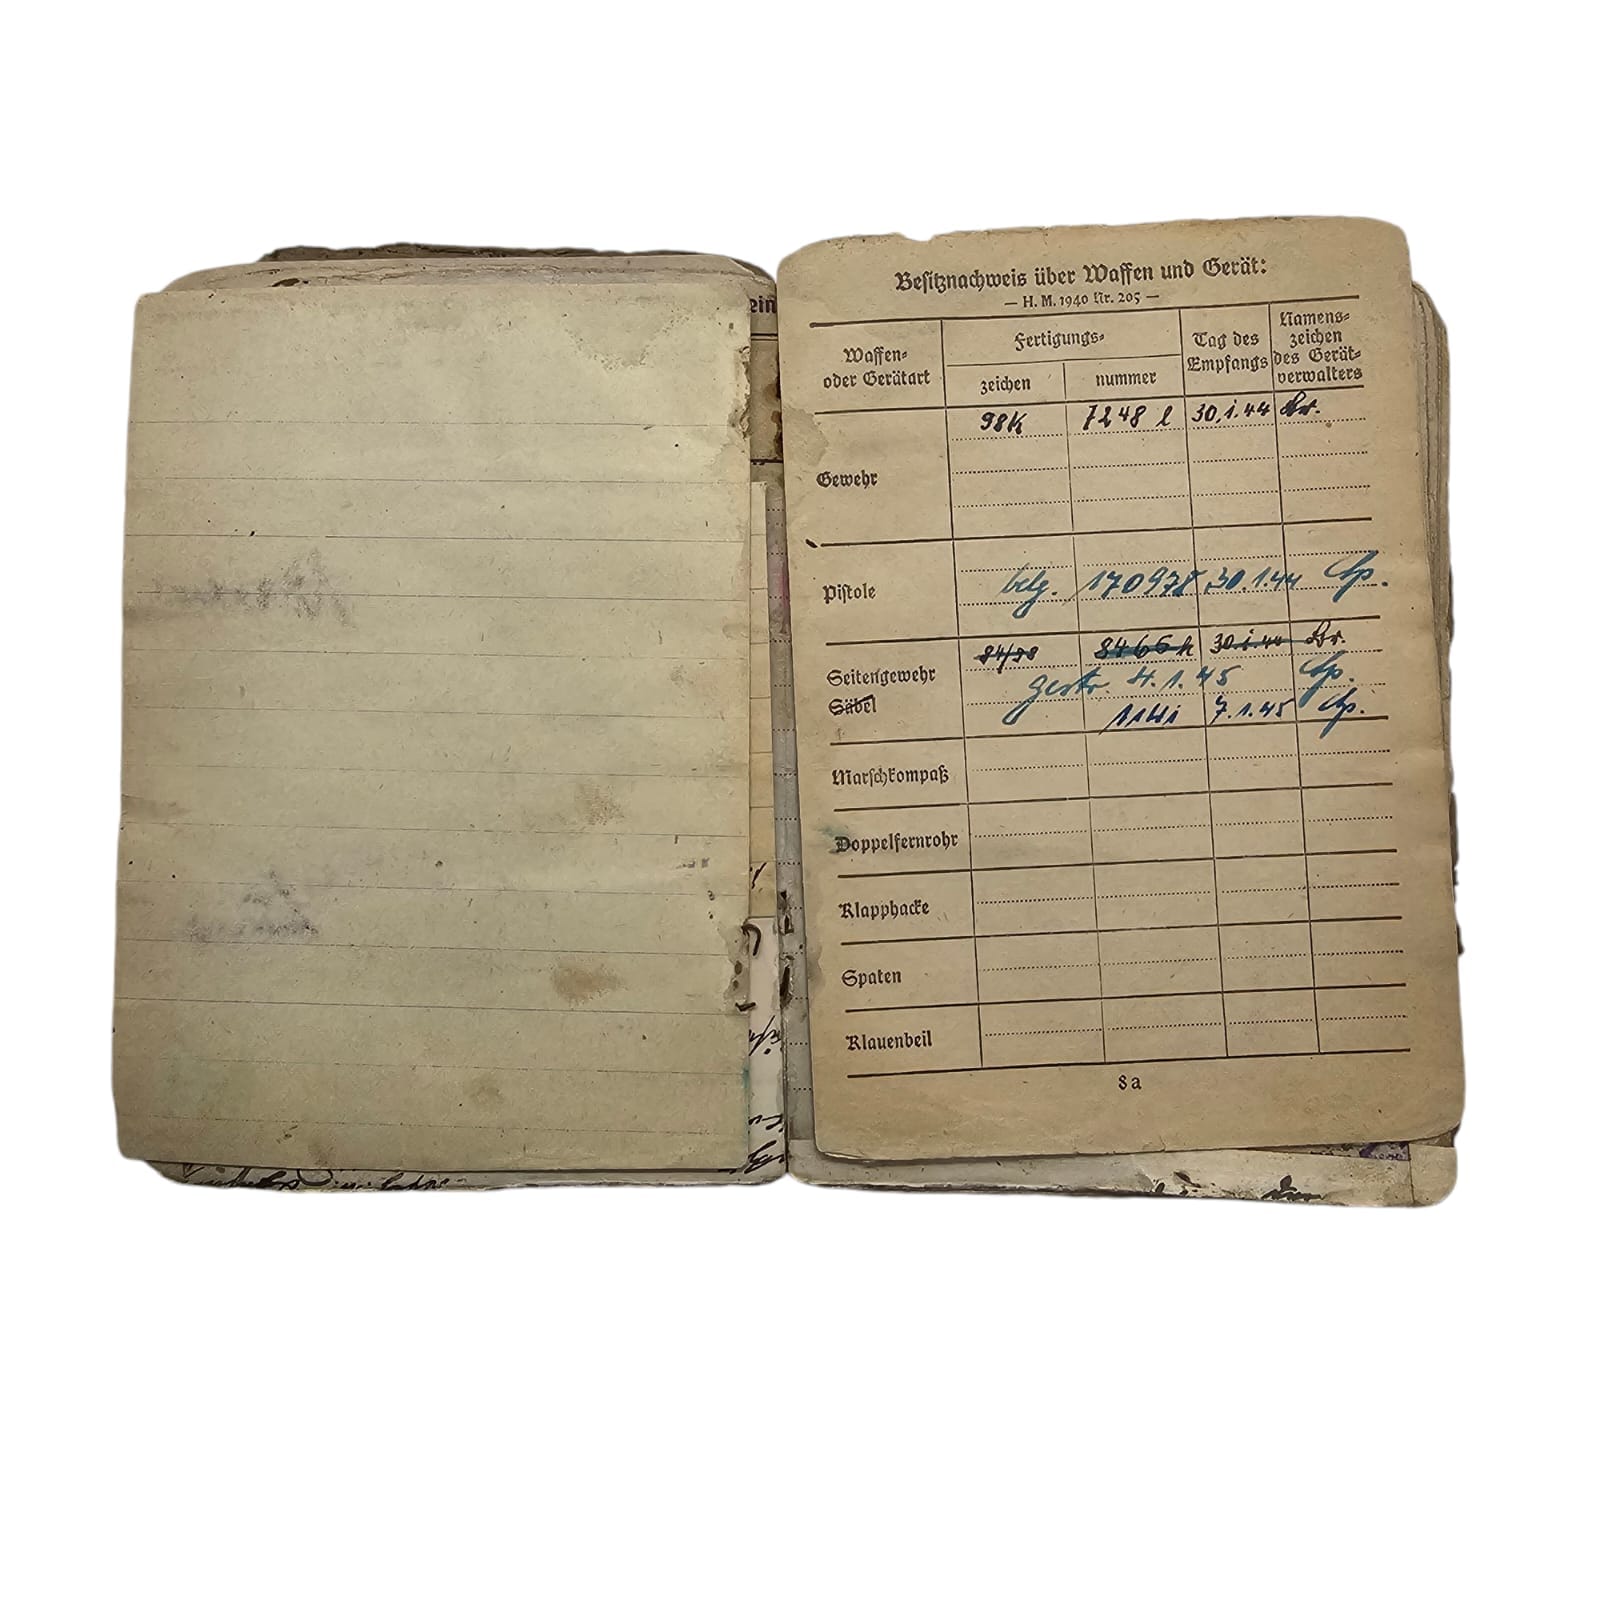 ein
Besitznachweis über Waffen und Gerät:
— H. M. 1940 Nr. 205 —
Waffen-
oder Gerätart
Fertigungs-
zeichen
nummer
Tag des
Empfangs
Namens-
zeichen
des Gerät-
verwalters
Gewehr
98k 7248 l 30.1.44 Br.
Pistole
belg. 170978 30.1.44
Seitengewehr
Säbel
84/98 8466 h 30.1.44 Br.
gestr. 4.1.45
7.1.45
Marschkompaß
Doppelfernrohr
Klapphacke
Spaten
Klauenbeil
8a